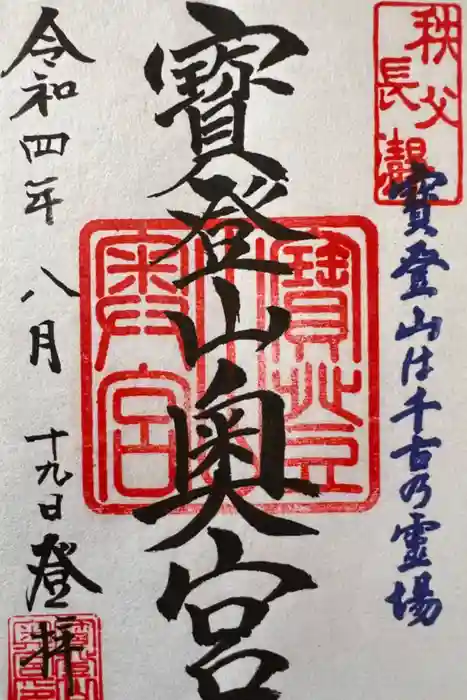 秩父
長瀞
寶登山は千古乃霊場
寶登山奥宮
寶登山
奥宮
令和四年八月十九日登拝